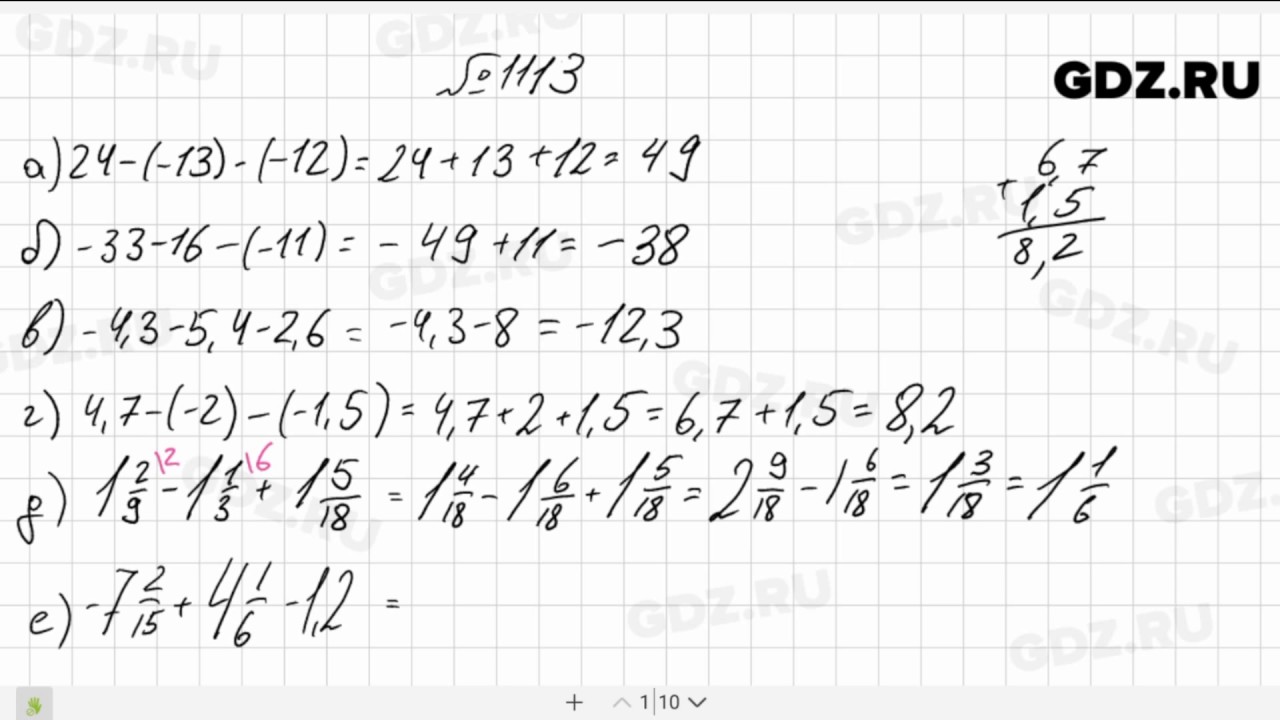 GDZ.RU
№1113
а) 24-(-13)-(-12)=24+13+12=49
б) -33-16-(-11)=-49+11=-38
в) -4,3-5,4-2,6=-4,3-8=-12,3
г) 4,7-(-2)-(-1,5)=4,7+2+1,5=6,7+1,5=8,2
д) 1 2/9 \2 - 1 1/3 \6 + 1 5/18 = 1 4/18 - 1 6/18 + 1 5/18 = 2 9/18 - 1 6/18 = 1 3/18 = 1 1/6
е) -7 2/15 + 4 1/6 - 1,2 =
6,7
+
1,5
8,2
1|10